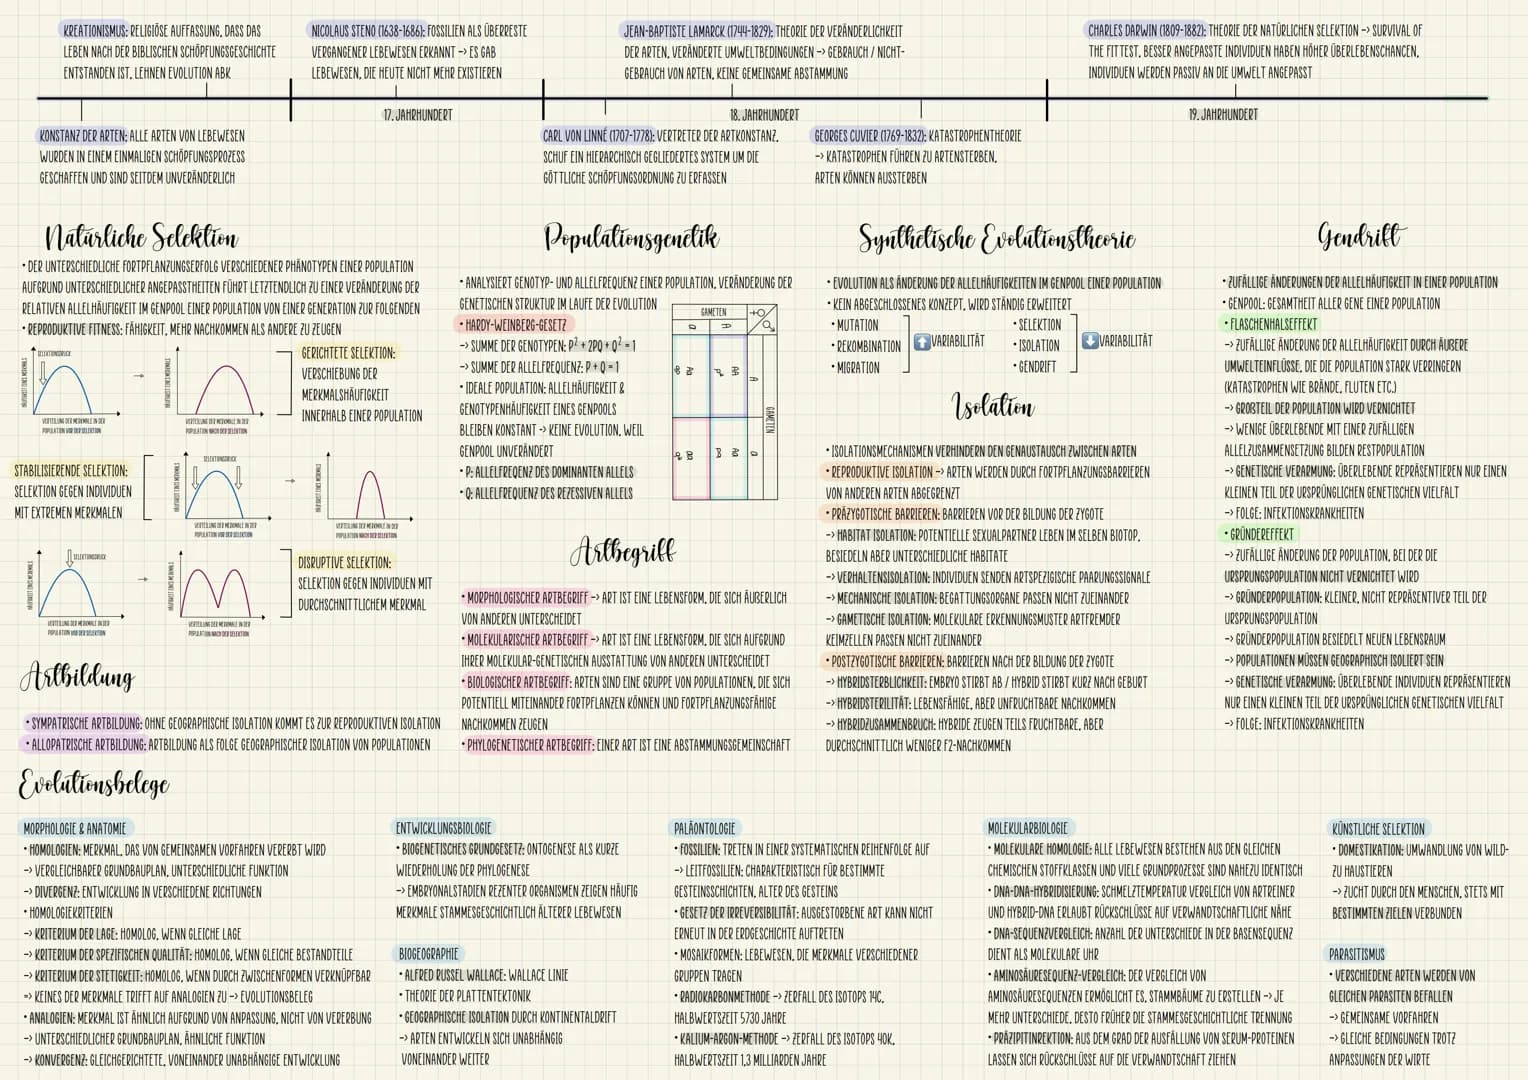 KREATIONISMUS: RELIGIÖSE AUFFASSUNG, DASS DAS
LEBEN NACH DER BIBLISCHEN SCHÖPFUNGSGESCHICHTE
ENTSTANDEN IST, LEHNEN EVOLUTION ABK
NICOLAUS STENO (1638-1686): FOSSILIEN ALS ÜBERRESTE
VERGANGENER LEBEWESEN ERKANNT -> ES GAB
LEBEWESEN, DIE HEUTE NICHT MEHR EXISTIEREN
JEAN-BAPTISTE LAMARCK (1744-1829): THEORIE DER VERÄNDERLICHKEIT
DER ARTEN, VERÄNDERTE UMWELTBEDINGUNGEN -> GEBRAUCH / NICHT-
GEBRAUCH VON ARTEN, KEINE GEMEINSAME ABSTAMMUNG
CHARLES DARWIN (1809-1882): THEORIE DER NATÜRLICHEN SELEKTION -> SURVIVAL OF
THE FITTEST, BESSER ANGEPASSTE INDIVIDUEN HABEN HÖHER ÜBERLEBENSCHANCEN,
INDIVIDUEN WERDEN PASSIV AN DIE UMWELT ANGEPASST
17. JAHRHUNDERT
18. JAHRHUNDERT
19. JAHRHUNDERT
KONSTANZ DER ARTEN: ALLE ARTEN VON LEBEWESEN
WURDEN IN EINEM EINMALIGEN SCHÖPFUNGSPROZESS
GESCHAFFEN UND SIND SEITDEM UNVERÄNDERLICH
CARL VON LINNÉ (1707-1778): VERTRETER DER ARTKONSTANZ,
SCHUF EIN HIERARCHISCH GEGLIEDERTES SYSTEM UM DIE
GÖTTLICHE SCHÖPFUNGSORDNUNG ZU ERFASSEN
GEORGES CUVIER (1769-1832): KATASTROPHENTHEORIE
-> KATASTROPHEN FÜHREN ZU ARTENSTERBEN,
ARTEN KÖNNEN AUSSTERBEN
Natürliche Selektion
• DER UNTERSCHIEDLICHE FORTPFLANZUNGSERFOLG VERSCHIEDENER PHÄNOTYPEN EINER POPULATION
AUFGRUND UNTERSCHIEDLICHER ANGEPASSTHEITEN FÜHRT LETZTENDLICH ZU EINER VERÄNDERUNG DER
RELATIVEN ALLELHÄUFIGKEIT IM GENPOOL EINER POPULATION VON EINER GENERATION ZUR FOLGENDEN
• REPRODUKTIVE FITNESS: FÄHIGKEIT, MEHR NACHKOMMEN ALS ANDERE ZU ZEUGEN
SELEKTIONSDRUCK
HÄUFIGKEIT EINES MERKMALS
VERTEILUNG DER MERKMALE IN DER
POPULATION VOR DER SELEKTION
->
HÄUFIGKEIT EINES MERKMALS
VERTEILUNG DER MERKMALE IN DER
POPULATION NACH DER SELEKTION
GERICHTETE SELEKTION:
VERSCHIEBUNG DER
MERKMALSHÄUFIGKEIT
INNERHALB EINER POPULATION
STABILISIERENDE SELEKTION:
SELEKTION GEGEN INDIVIDUEN
MIT EXTREMEN MERKMALEN
SELEKTIONSDRUCK
HÄUFIGKEIT EINES MERKMALS
VERTEILUNG DER MERKMALE IN DER
POPULATION VOR DER SELEKTION
->
HÄUFIGKEIT EINES MERKMALS
VERTEILUNG DER MERKMALE IN DER
POPULATION NACH DER SELEKTION
SELEKTIONSDRUCK
HÄUFIGKEIT EINES MERKMALS
VERTEILUNG DER MERKMALE IN DER
POPULATION VOR DER SELEKTION
->
HÄUFIGKEIT EINES MERKMALS
VERTEILUNG DER MERKMALE IN DER
POPULATION NACH DER SELEKTION
DISRUPTIVE SELEKTION:
SELEKTION GEGEN INDIVIDUEN MIT
DURCHSCHNITTLICHEM MERKMAL
Artbildung
• SYMPATRISCHE ARTBILDUNG: OHNE GEOGRAPHISCHE ISOLATION KOMMT ES ZUR REPRODUKTIVEN ISOLATION
• ALLOPATRISCHE ARTBILDUNG: ARTBILDUNG ALS FOLGE GEOGRAPHISCHER ISOLATION VON POPULATIONEN
Populationsgenetik
• ANALYSIERT GENOTYP- UND ALLELFREQUENZ EINER POPULATION, VERÄNDERUNG DER
GENETISCHEN STRUKTUR IM LAUFE DER EVOLUTION
• HARDY-WEINBERG-GESETZ
-> SUMME DER GENOTYPEN: P² + 2PQ + Q² = 1
-> SUMME DER ALLELFREQUENZ: P + Q = 1
• IDEALE POPULATION: ALLELHÄUFIGKEIT &
GENOTYPENHÄUFIGKEIT EINES GENPOOLS
BLEIBEN KONSTANT -> KEINE EVOLUTION, WEIL
GENPOOL UNVERÄNDERT
• P: ALLELFREQENZ DES DOMINANTEN ALLELS
• Q: ALLELFREQUENZ DES REZESSIVEN ALLELS
GAMETEN
♀
♂
a
A
GAMETEN
A
Aa
qp
AA
p²
a
aa
q²
Aa
pq
Artbegriff
• MORPHOLOGISCHER ARTBEGRIFF -> ART IST EINE LEBENSFORM, DIE SICH ÄUßERLICH
VON ANDEREN UNTERSCHEIDET
• MOLEKULARISCHER ARTBEGRIFF -> ART IST EINE LEBENSFORM, DIE SICH AUFGRUND
IHRER MOLEKULAR-GENETISCHEN AUSSTATTUNG VON ANDEREN UNTERSCHEIDET
• BIOLOGISCHER ARTBEGRIFF: ARTEN SIND EINE GRUPPE VON POPULATIONEN, DIE SICH
POTENTIELL MITEINANDER FORTPFLANZEN KÖNNEN UND FORTPFLANZUNGSFÄHIGE
NACHKOMMEN ZEUGEN
• PHYLOGENETISCHER ARTBEGRIFF: EINER ART IST EINE ABSTAMMUNGSGEMEINSCHAFT
Synthetische Evolutionstheorie
• EVOLUTION ALS ÄNDERUNG DER ALLELHÄUFIGKEITEN IM GENPOOL EINER POPULATION
• KEIN ABGESCHLOSSENES KONZEPT, WIRD STÄNDIG ERWEITERT
• MUTATION
• REKOMBINATION
• MIGRATION
⬆ VARIABILITÄT
• SELEKTION
• ISOLATION
• GENDRIFT
⬇ VARIABILITÄT
Isolation
• ISOLATIONSMECHANISMEN VERHINDERN DEN GENAUSTAUSCH ZWISCHEN ARTEN
• REPRODUKTIVE ISOLATION -> ARTEN WERDEN DURCH FORTPFLANZUNGSBARRIEREN
VON ANDEREN ARTEN ABGEGRENZT
• PRÄZYGOTISCHE BARRIEREN: BARRIEREN VOR DER BILDUNG DER ZYGOTE
-> HABITAT ISOLATION: POTENTIELLE SEXUALPARTNER LEBEN IM SELBEN BIOTOP,
BESIEDELN ABER UNTERSCHIEDLICHE HABITATE
-> VERHALTENSISOLATION: INDIVIDUEN SENDEN ARTSPEZIGISCHE PAARUNGSSIGNALE
-> MECHANISCHE ISOLATION: BEGATTUNGSORGANE PASSEN NICHT ZUEINANDER
-> GAMETISCHE ISOLATION: MOLEKULARE ERKENNUNGSMUSTER ARTFREMDER
KEIMZELLEN PASSEN NICHT ZUEINANDER
• POSTZYGOTISCHE BARRIEREN: BARRIEREN NACH DER BILDUNG DER ZYGOTE
-> HYBRIDSTERBLICHKEIT: EMBRYO STIRBT AB / HYBRID STIRBT KURZ NACH GEBURT
-> HYBRIDSTERILITÄT: LEBENSFÄHIGE, ABER UNFRUCHTBARE NACHKOMMEN
-> HYBRIDZUSAMMENBRUCH: HYBRIDE ZEUGEN TEILS FRUCHTBARE, ABER
DURCHSCHNITTLICH WENIGER F2-NACHKOMMEN
Gendrift
• ZUFÄLLIGE ÄNDERUNGEN DER ALLELHÄUFIGKEIT IN EINER POPULATION
• GENPOOL: GESAMTHEIT ALLER GENE EINER POPULATION
• FLASCHENHALSEFFEKT
-> ZUFÄLLIGE ÄNDERUNG DER ALLELHÄUFIGKEIT DURCH ÄUßERE
UMWELTEINFLÜSSE, DIE DIE POPULATION STARK VERRINGERN
(KATASTROPHEN WIE BRÄNDE, FLUTEN ETC.)
-> GROßTEIL DER POPULATION WIRD VERNICHTET
-> WENIGE ÜBERLEBENDE MIT EINER ZUFÄLLIGEN
ALLELZUSAMMENSETZUNG BILDEN RESTPOPULATION
-> GENETISCHE VERARMUNG: ÜBERLEBENDE REPRÄSENTIEREN NUR EINEN
KLEINEN TEIL DER URSPRÜNGLICHEN GENETISCHEN VIELFALT
-> FOLGE: INFEKTIONSKRANKHEITEN
• GRÜNDEREFFEKT
-> ZUFÄLLIGE ÄNDERUNG DER POPULATION, BEI DER DIE
URSPRUNGSPOPULATION NICHT VERNICHTET WIRD
-> GRÜNDERPOPULATION: KLEINER, NICHT REPRÄSENTIVER TEIL DER
URSPRUNGSPOPULATION
-> GRÜNDERPOPULATION BESIEDELT NEUEN LEBENSRAUM
-> POPULATIONEN MÜSSEN GEOGRAPHISCH ISOLIERT SEIN
-> GENETISCHE VERARMUNG: ÜBERLEBENDE INDIVIDUEN REPRÄSENTIEREN
NUR EINEN KLEINEN TEIL DER URSPRÜNGLICHEN GENETISCHEN VIELFALT
-> FOLGE: INFEKTIONSKRANKHEITEN
Evolutionsbelege
MORPHOLOGIE & ANATOMIE
• HOMOLOGIEN: MERKMAL, DAS VON GEMEINSAMEN VORFAHREN VERERBT WIRD
-> VERGLEICHBARER GRUNDBAUPLAN, UNTERSCHIEDLICHE FUNKTION
-> DIVERGENZ: ENTWICKLUNG IN VERSCHIEDENE RICHTUNGEN
• HOMOLOGIEKRITERIEN
-> KRITERIUM DER LAGE: HOMOLOG, WENN GLEICHE LAGE
-> KRITERIUM DER SPEZIFISCHEN QUALITÄT: HOMOLOG, WENN GLEICHE BESTANDTEILE
-> KRITERIUM DER STETIGKEIT: HOMOLOG, WENN DURCH ZWISCHENFORMEN VERKNÜPFBAR
=> KEINES DER MERKMALE TRIFFT AUF ANALOGIEN ZU -> EVOLUTIONSBELEG
• ANALOGIEN: MERKMAL IST ÄHNLICH AUFGRUND VON ANPASSUNG, NICHT VON VERERBUNG
-> UNTERSCHIEDLICHER GRUNDBAUPLAN, ÄHNLICHE FUNKTION
-> KONVERGENZ: GLEICHGERICHTETE, VONEINANDER UNABHÄNGIGE ENTWICKLUNG
ENTWICKLUNGSBIOLOGIE
• BIOGENETISCHES GRUNDGESETZ: ONTOGENESE ALS KURZE
WIEDERHOLUNG DER PHYLOGENESE
-> EMBRYONALSTADIEN REZENTER ORGANISMEN ZEIGEN HÄUFIG
MERKMALE STAMMESGESCHICHTLICH ÄLTERER LEBEWESEN
BIOGEOGRAPHIE
• ALFRED RUSSEL WALLACE: WALLACE LINIE
• THEORIE DER PLATTENTEKTONIK
• GEOGRAPHISCHE ISOLATION DURCH KONTINENTALDRIFT
-> ARTEN ENTWICKELN SICH UNABHÄNGIG
VONEINANDER WEITER
PALÄONTOLOGIE
• FOSSILIEN: TRETEN IN EINER SYSTEMATISCHEN REIHENFOLGE AUF
-> LEITFOSSILIEN: CHARAKTERISTISCH FÜR BESTIMMTE
GESTEINSSCHICHTEN, ALTER DES GESTEINS
• GESETZ DER IRREVERSIBILITÄT: AUSGESTORBENE ART KANN NICHT
ERNEUT IN DER ERDGESCHICHTE AUFTRETEN
• MOSAIKFORMEN: LEBEWESEN, DIE MERKMALE VERSCHIEDENER
GRUPPEN TRAGEN
• RADIOKARBONMETHODE -> ZERFALL DES ISOTOPS 14C,
HALBWERTSZEIT 5730 JAHRE
• KALIUM-ARGON-METHODE -> ZERFALL DES ISOTOPS 40K,
HALBWERTSZEIT 1,3 MILLIARDEN JAHRE
MOLEKULARBIOLOGIE
• MOLEKULARE HOMOLOGIE: ALLE LEBEWESEN BESTEHEN AUS DEN GLEICHEN
CHEMISCHEN STOFFKLASSEN UND VIELE GRUNDPROZESSE SIND NAHEZU IDENTISCH
• DNA-DNA-HYBRIDISIERUNG: SCHMELZTEMPERATUR VERGLEICH VON ARTREINER
UND HYBRID-DNA ERLAUBT RÜCKSCHLÜSSE AUF VERWANDTSCHAFTLICHE NÄHE
• DNA-SEQUENZVERGLEICH: ANZAHL DER UNTERSCHIEDE IN DER BASENSEQUENZ
DIENT ALS MOLEKULARE UHR
• AMINOSÄURESEQUENZ-VERGLEICH: DER VERGLEICH VON
AMINOSÄURESEQUENZEN ERMÖGLICHT ES, STAMMBÄUME ZU ERSTELLEN -> JE
MEHR UNTERSCHIEDE, DESTO FRÜHER DIE STAMMESGESCHICHTLICHE TRENNUNG
• PRÄZIPITINREKTION: AUS DEM GRAD DER AUSFÄLLUNG VON SERUM-PROTEINEN
LASSEN SICH RÜCKSCHLÜSSE AUF DIE VERWANDTSCHAFT ZIEHEN
KÜNSTLICHE SELEKTION
• DOMESTIKATION: UMWANDLUNG VON WILD-
ZU HAUSTIEREN
-> ZUCHT DURCH DEN MENSCHEN, STETS MIT
BESTIMMTEN ZIELEN VERBUNDEN
PARASITISMUS
• VERSCHIEDENE ARTEN WERDEN VON
GLEICHEN PARASITEN BEFALLEN
-> GEMEINSAME VORFAHREN
-> GLEICHE BEDINGUNGEN TROTZ
ANPASSUNGEN DER WIRTE